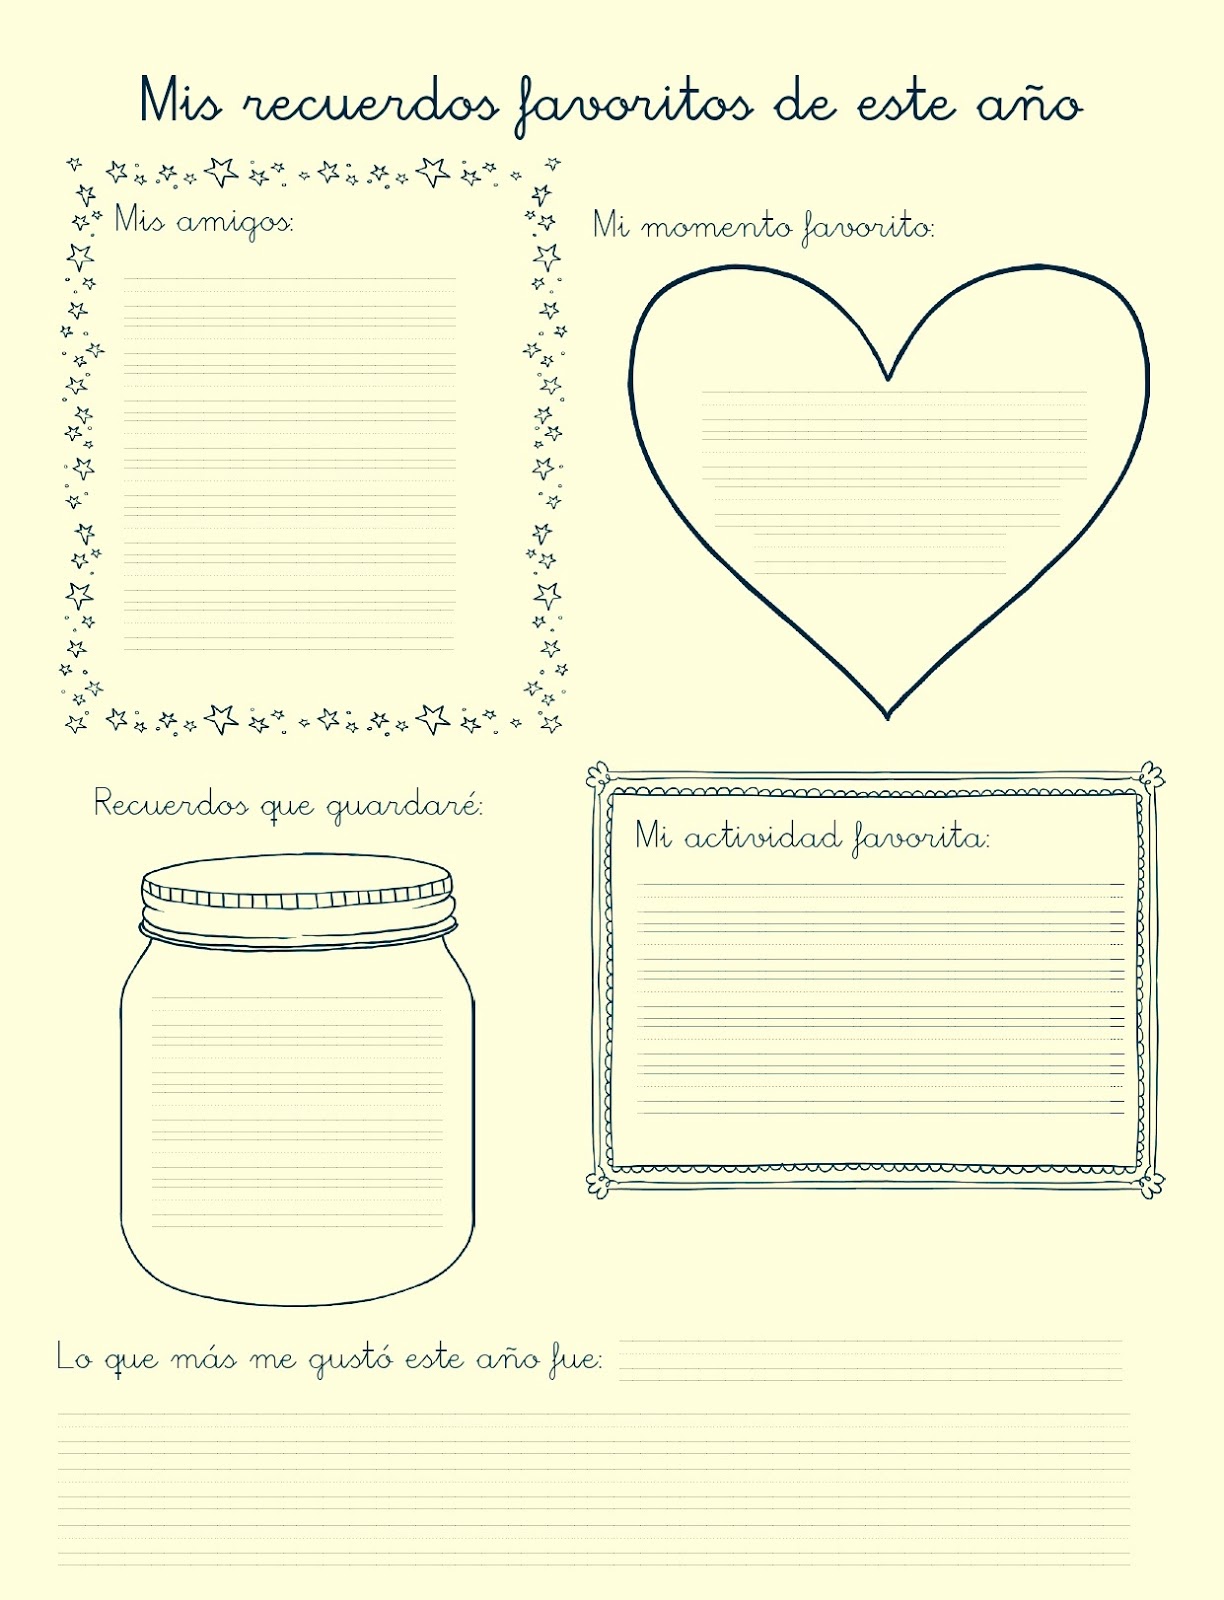 Mis recuerdos favoritos de este año
Mis amigos:
Mi momento favorito:
Recuerdos que guardaré:
Mi actividad favorita:
Lo que más me gustó este año fue: